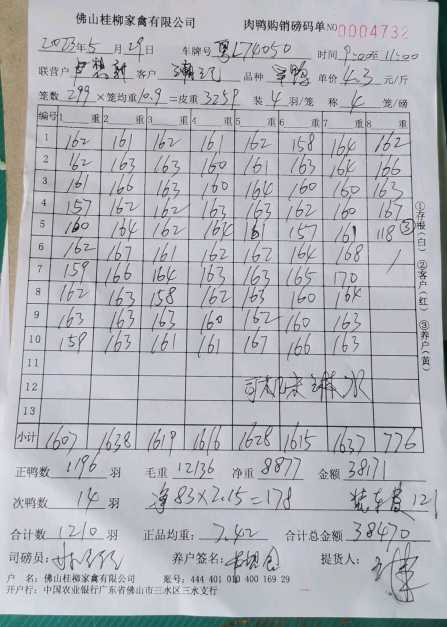 佛山桂柳家禽有限公司 肉鸭购销磅码单 NO 0004732
2023年5月29日 车牌号 粤L74050 时间 9:00至11:00
联营户 客户 品种 单价 4.3 元/斤
笼数 299 ×笼均重 10.9 =皮重 3259 装 4 羽/笼 称 4 笼/磅
编号 1 重 2 重 3 重 4 重 5 重 6 重 7 重 8 重
1 162 161 162 161 162 158 164 162
2 162 163 163 160 161 163 164 166
3 161 166 163 160 164 160 160 163
4 157 162 162 163 163 162 160 167
5 160 164 162 164 161 157 161 118 ③
6 162 167 161 162 162 164 168
7 159 166 164 163 163 165 170
8 162 163 158 162 163 160 164
9 163 163 163 160 162 160 163
10 159 163 161 161 167 166 163
11
12
13
小计 1607 1638 1619 1616 1628 1615 1637 776
①存根(白) ②客户(红) ③养户(黄)
正鸭数 1196 羽 毛重 12136 净重 8877 金额 38171
次鸭数 14 羽 净83×2.15=178 装车费 121
合计数 1210 羽 正品均重: 7.42 合计总金额 38470
司磅员: 养户签名: 提货人:
户 名: 佛山桂柳家禽有限公司 账号: 444 401 010 400 169 29
开户行: 中国农业银行广东省佛山市三水区三水支行